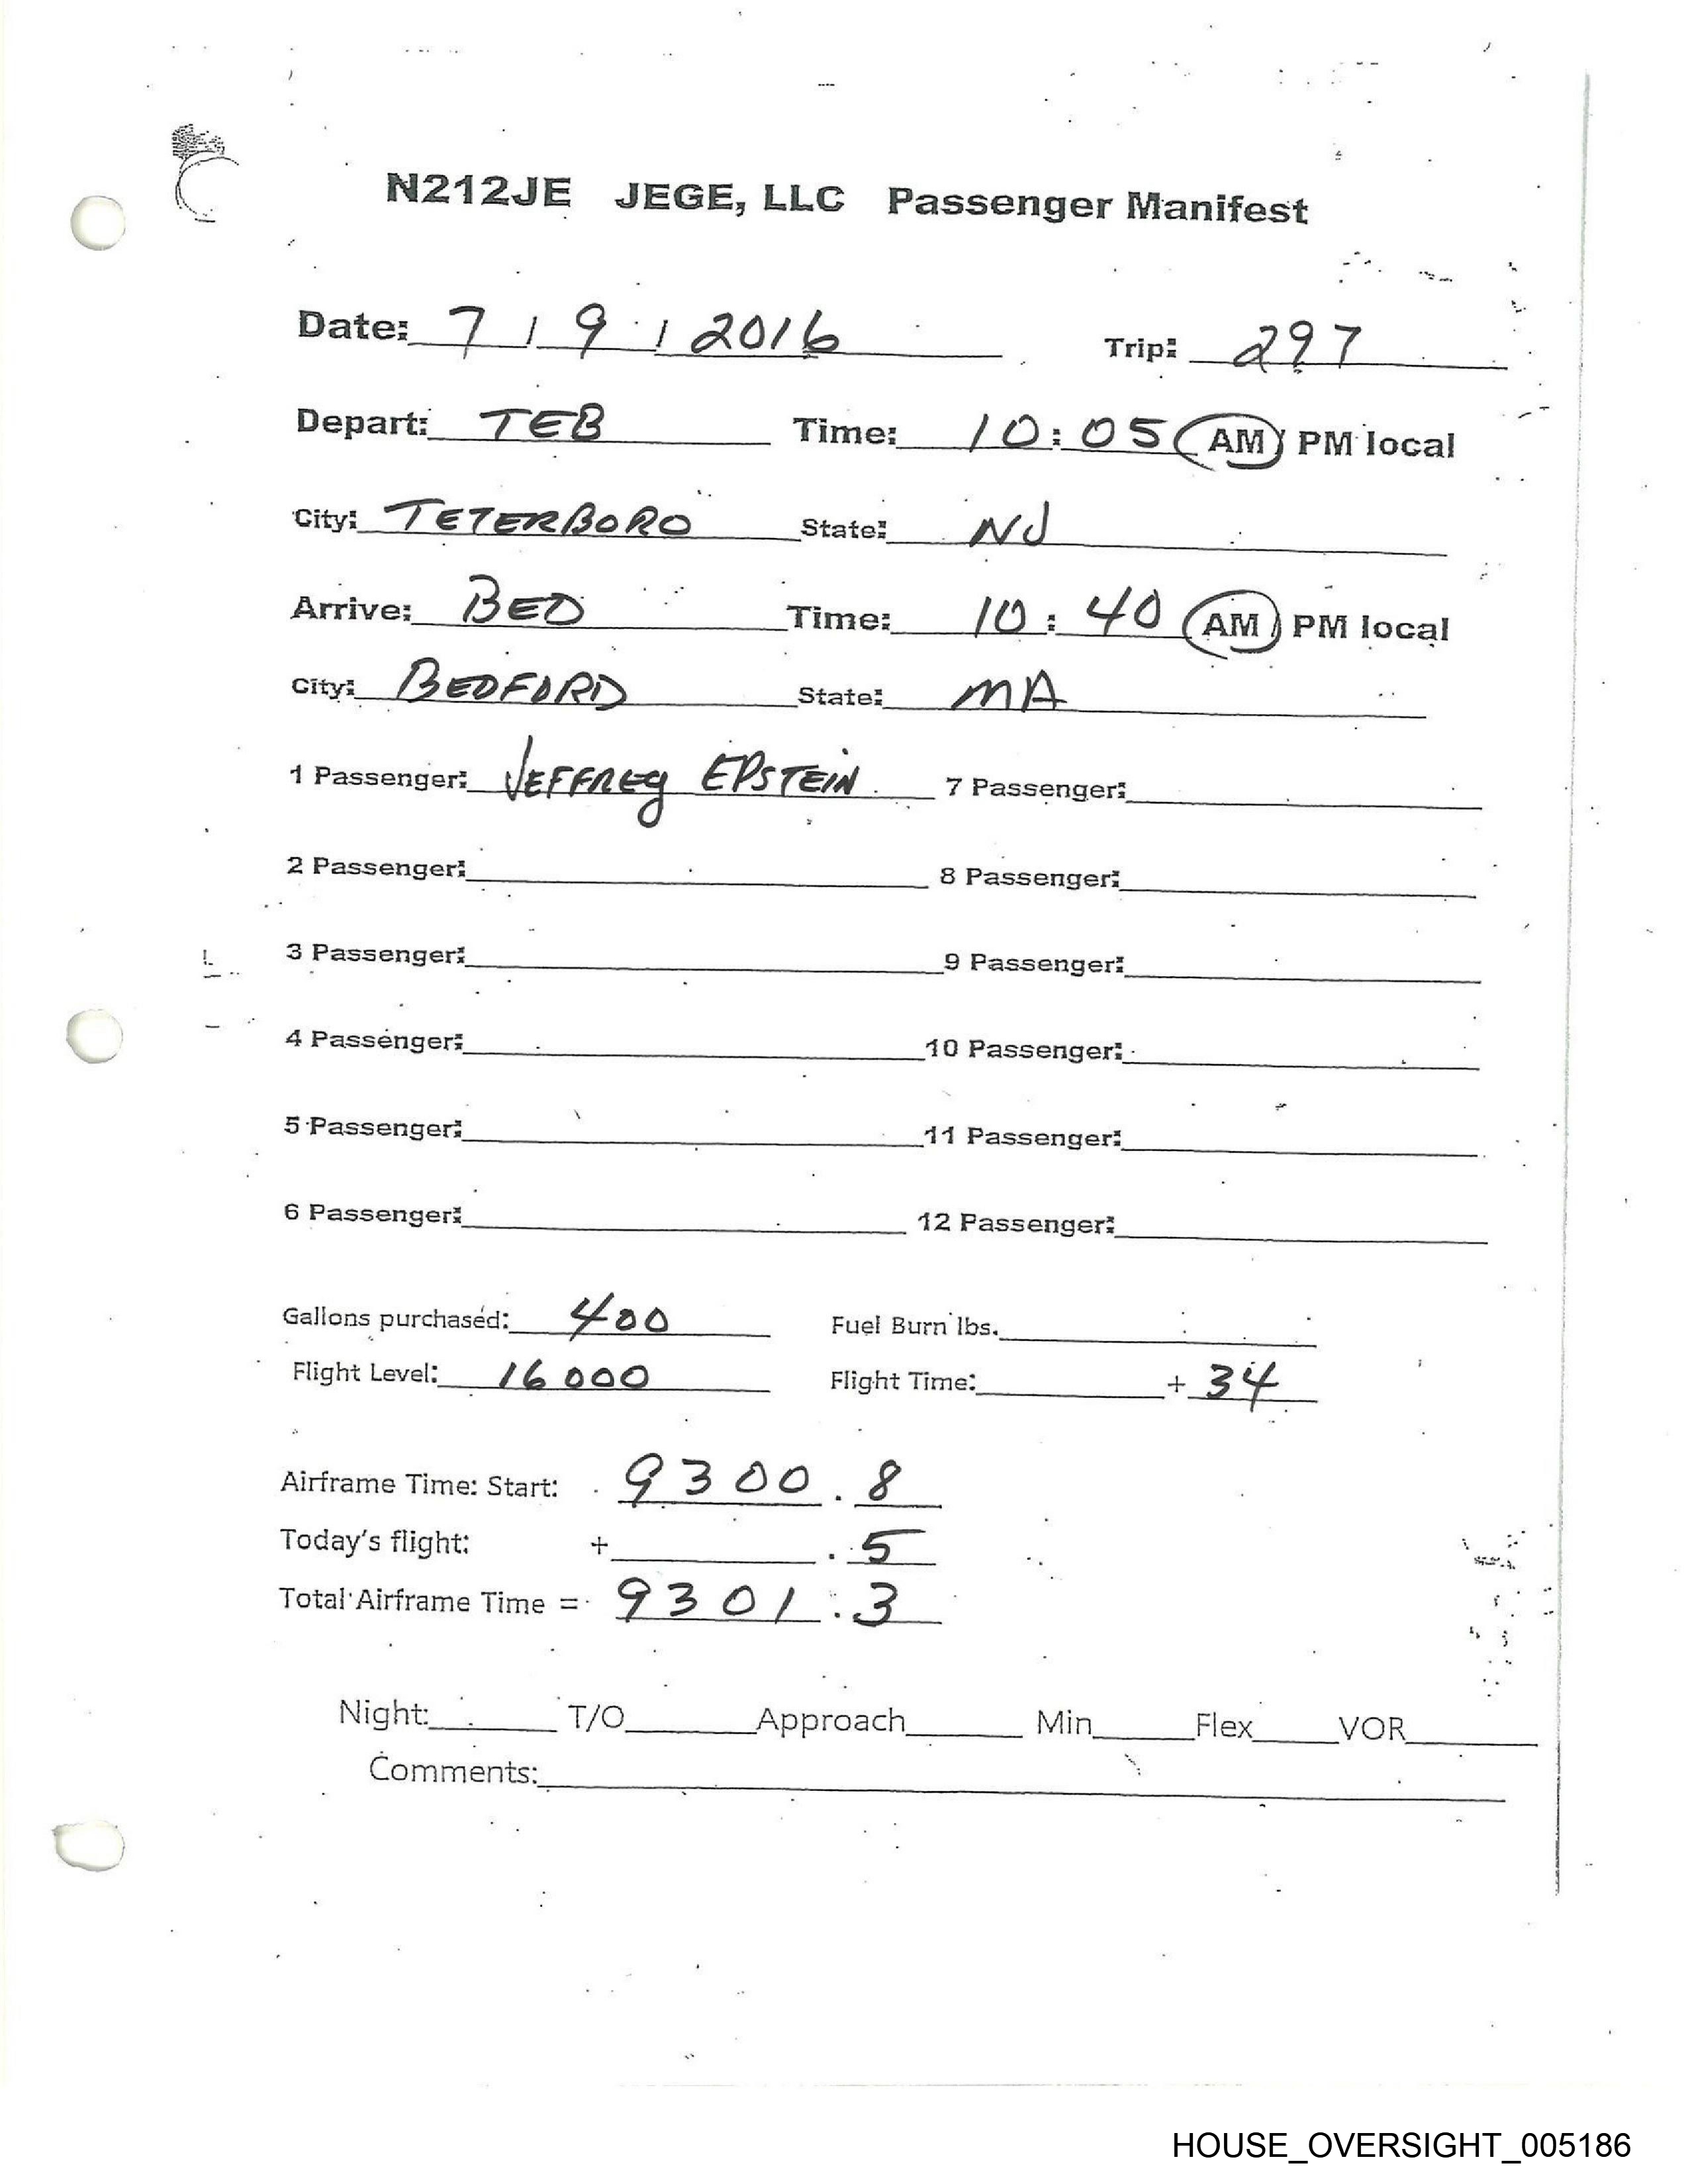 N212JE JEGE, LLC Passenger Manifest
Date: 7 / 9 / 2016 Trip: 297
Depart: TEB Time: 10:05 AM/ PM local
City: TETERBORO State: NJ
Arrive: BED Time: 10:40 AM/ PM local
City: BEDFORD State: MA
1 Passenger: JEFFREY EPSTEIN 7 Passenger:
2 Passenger: 8 Passenger:
3 Passenger: 9 Passenger:
4 Passenger: 10 Passenger:
5 Passenger: 11 Passenger:
6 Passenger: 12 Passenger:
Gallons purchased: 400 Fuel Burn lbs.
Flight Level: 16 000 Flight Time: + 34
Airframe Time: Start: 9300.8
Today's flight: + .5
Total Airframe Time = 9301.3
Night: T/O Approach Min Flex VOR
Comments:
HOUSE_OVERSIGHT_005186